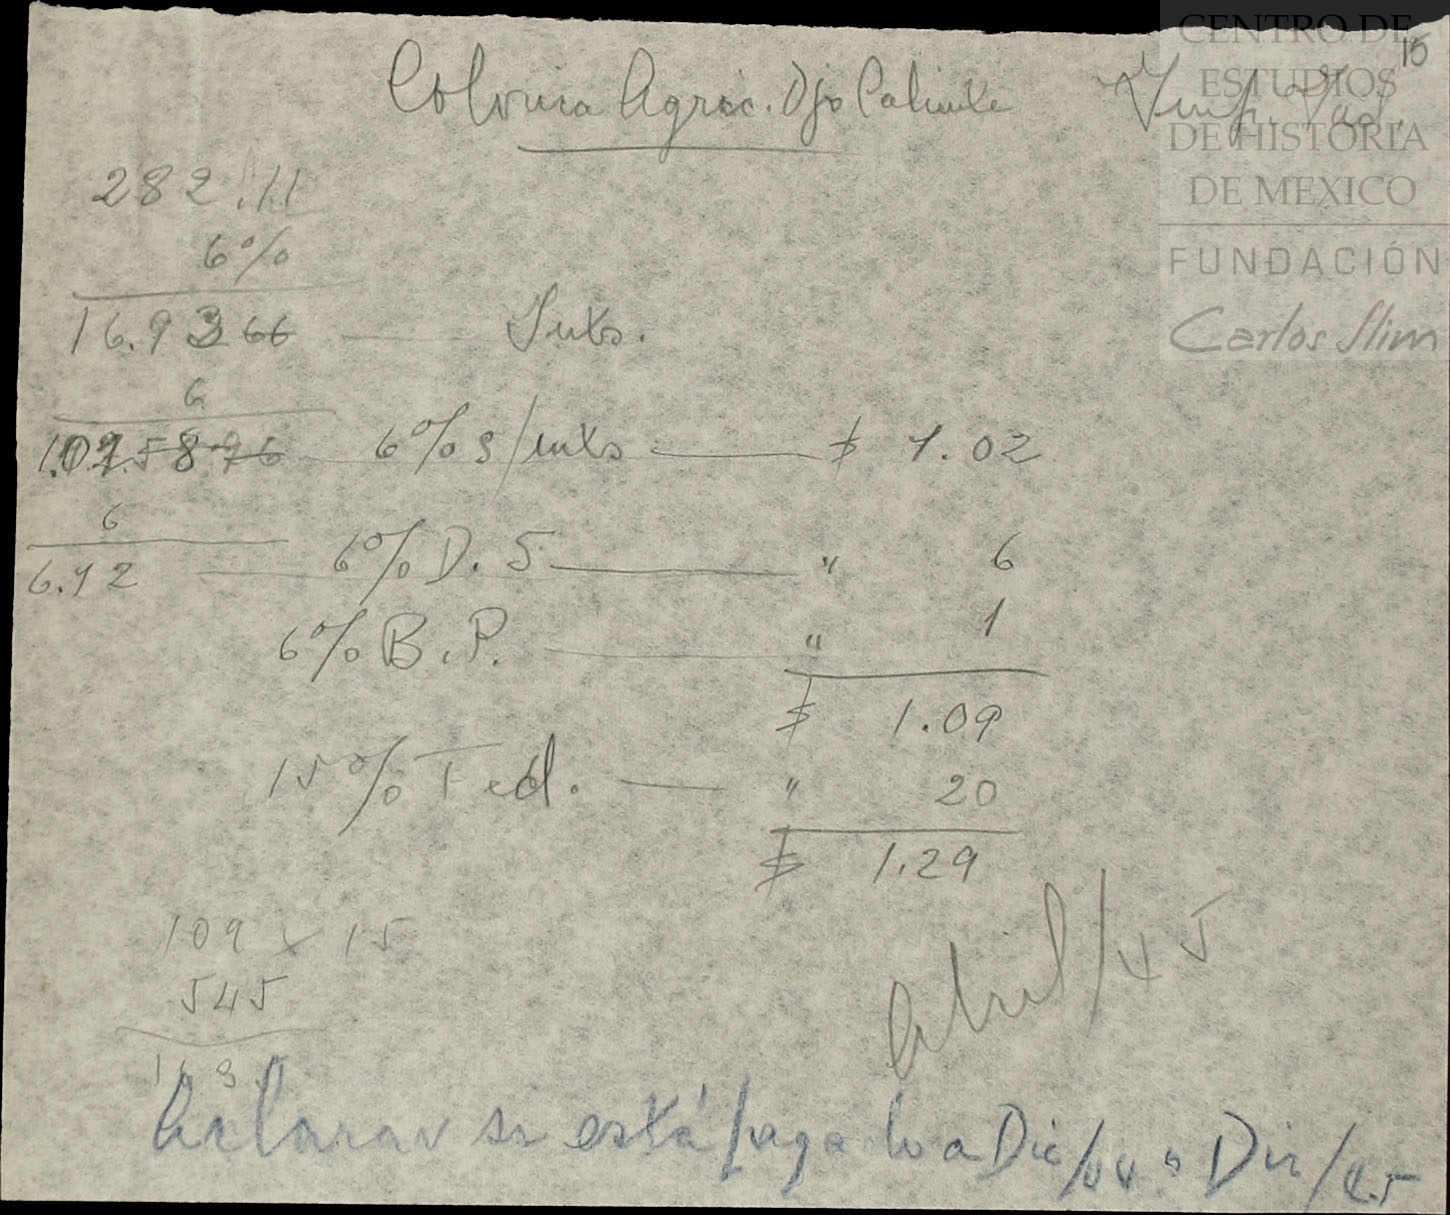 15
Colonia Agric. Ojo Caliente
CENTRO DE
ESTUDIOS
DE HISTORIA
DE MEXICO
FUNDACIÓN
Carlos Slim
282.11
6%
16.9366 Ints.
6
6% s/ints $ 1.02
6
6.12 6% D. S " 6
6% B.P. " 1
$ 1.09
15% Fed. " 20
$ 1.29
109 x 15
545
163
Abril/45
Aclarar si está pagado a Dic/44 o Dic/45